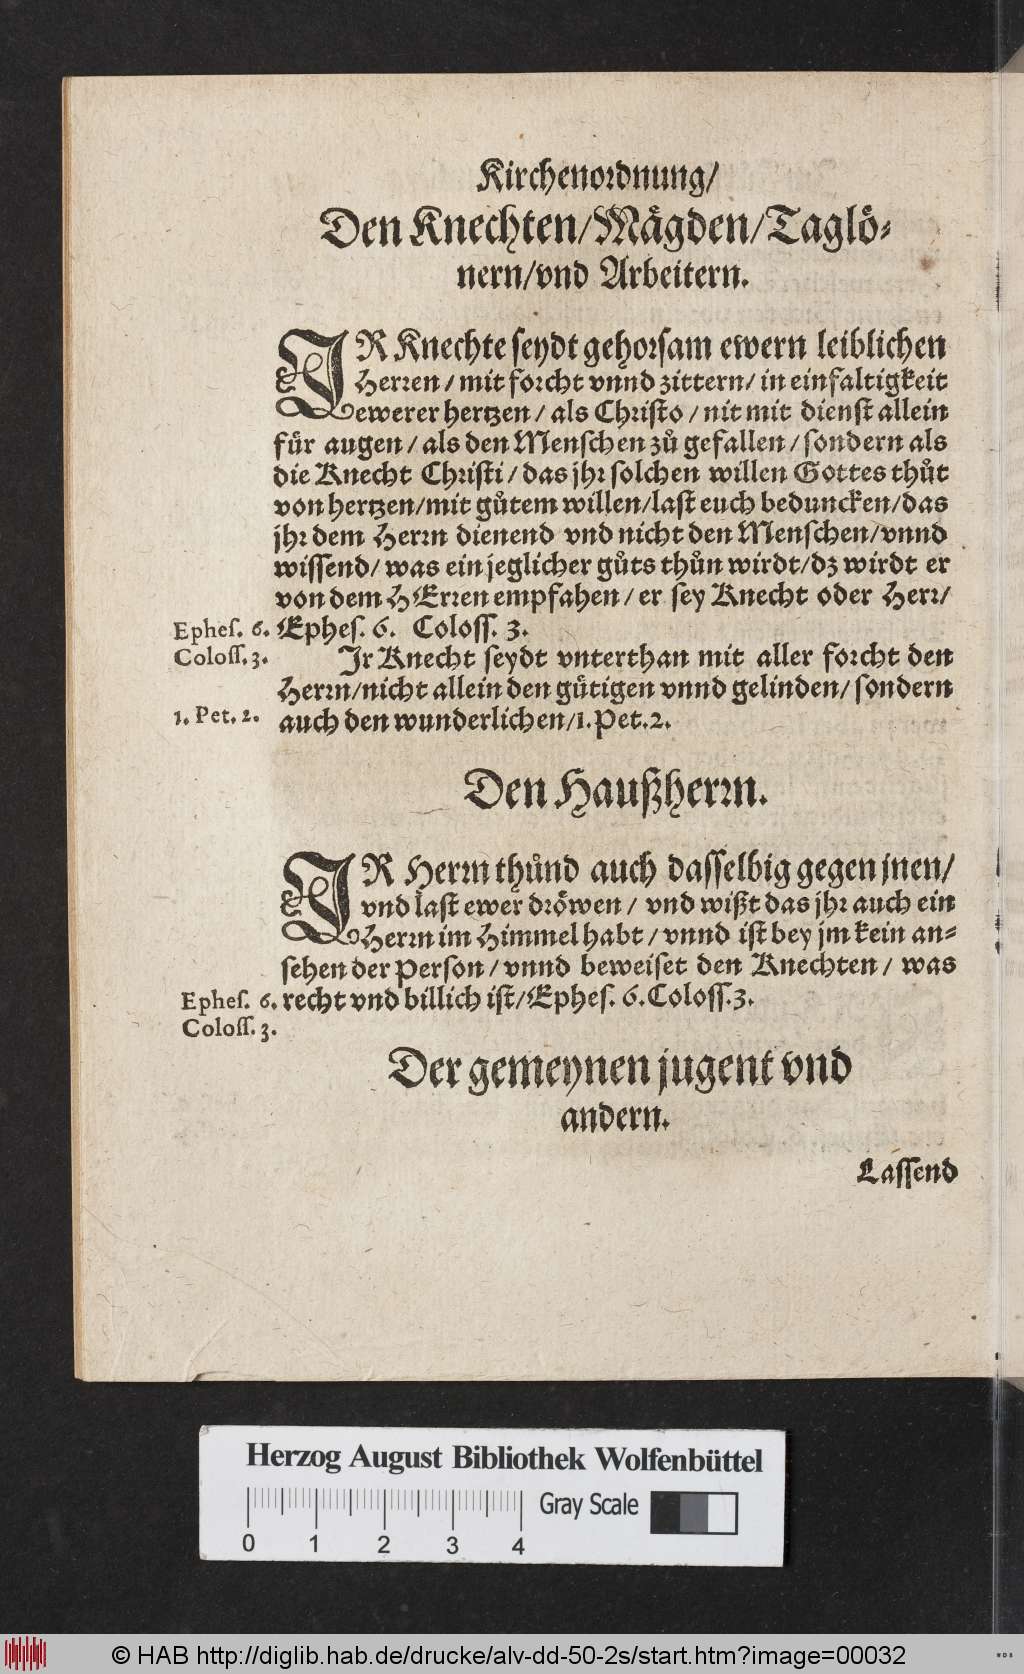 Kirchenordnung/
Den Knechten/Mägden/Taglö-
nern/vnd Arbeitern.
IR Knechte seydt gehorsam ewern leiblichen
Herren / mit forcht vnnd zittern/ in einfaltigkeit
ewerer hertzen / als Christo / nit mit dienst allein
für augen / als den Menschen zů gefallen / sondern als
die Knecht Christi / das jhr solchen willen Gottes thůt
von hertzen/mit gůtem willen/last euch beduncken/das
jhr dem Herrn dienend vnd nicht den Menschen/vnnd
wissend/ was ein jeglicher gůts thůn wirdt/dz wirdt er
von dem HErren empfahen / er sey Knecht oder Herr/
Ephes. 6. Ephes. 6. Coloss. 3.
Coloss. 3. Ir Knecht seydt vnterthan mit aller forcht den
Herrn/nicht allein den gütigen vnnd gelinden/ sondern
1. Pet. 2. auch den wunderlichen/1. Pet. 2.
Den Haußherrn.
IR Herrn thůnd auch dasselbig gegen jnen/
vnd last ewer dröwen / vnd wißt das jhr auch ein
Herrn im Himmel habt / vnnd ist bey jm kein an-
sehen der Person / vnnd beweiset den Knechten / was
Ephes. 6. recht vnd billich ist/Ephes. 6. Coloss. 3.
Coloss. 3.
Der gemeynen jugent vnd
andern.
Lassend
Herzog August Bibliothek Wolfenbüttel
Gray Scale
0 1 2 3 4
© HAB http://diglib.hab.de/drucke/alv-dd-50-2s/start.htm?image=00032